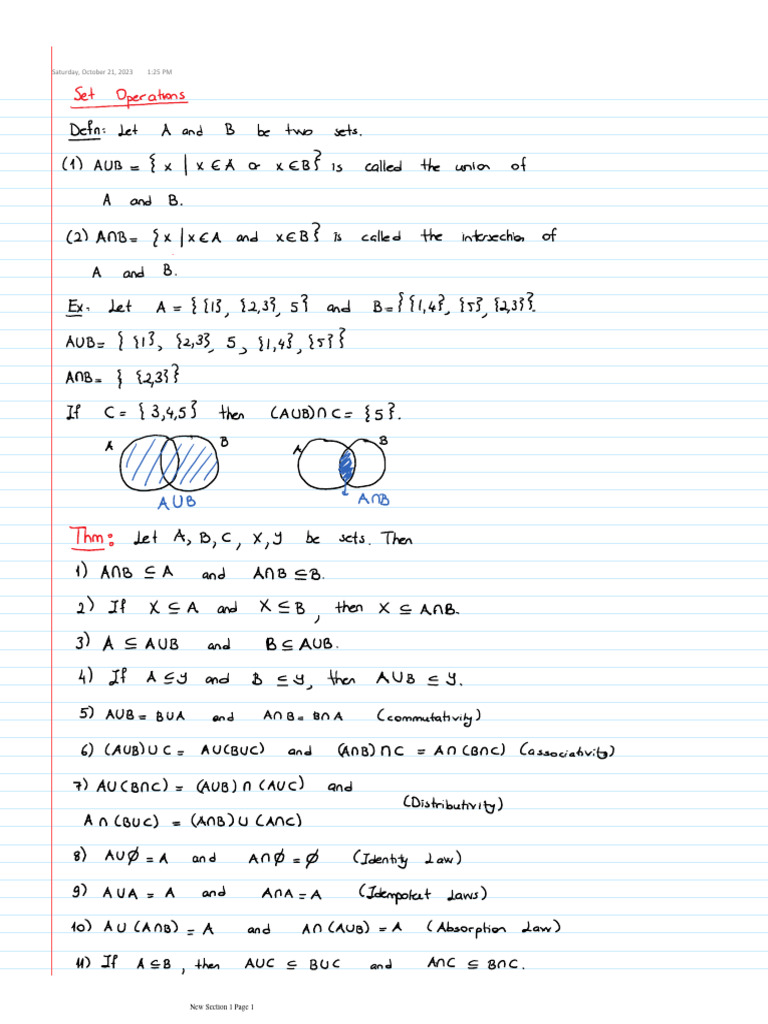 Saturday, October 21, 2023 1:25 PM
Set Operations
Defn: Let A and B be two sets.
(1) A∪B = { x | x ∈ A or x ∈ B} is called the union of
A and B.
(2) A∩B = {x | x ∈ A and x ∈ B} is called the intersection of
A and B.
Ex. Let A = { {1}, {2,3}, 5} and B = {{1,4}, {5}, {2,3}}.
A∪B = { {1}, {2,3}, 5, {1,4}, {5}}
A∩B = { {2,3}}
If C = { 3,4,5} then (A∪B)∩C = {5}.
A B A B
A∪B A∩B
Thm: Let A, B, C, X, Y be sets. Then
1) A∩B ⊆ A and A∩B ⊆ B.
2) If X ⊆ A and X ⊆ B, then X ⊆ A∩B.
3) A ⊆ A∪B and B ⊆ A∪B.
4) If A ⊆ Y and B ⊆ Y, then A∪B ⊆ Y.
5) A∪B = B∪A and A∩B = B∩A (commutativity)
6) (A∪B)∪C = A∪(B∪C) and (A∩B)∩C = A∩(B∩C) (associativity)
7) A∪(B∩C) = (A∪B)∩(A∪C) and
(Distributivity)
A∩(B∪C) = (A∩B)∪(A∩C)
8) A∪∅ = A and A∩∅ = ∅ (Identity Law)
9) A∪A = A and A∩A = A (Idempotent Laws)
10) A∪(A∩B) = A and A∩(A∪B) = A (Absorption Law)
11) If A ⊆ B, then A∪C ⊆ B∪C and A∩C ⊆ B∩C.
New Section 1 Page 1